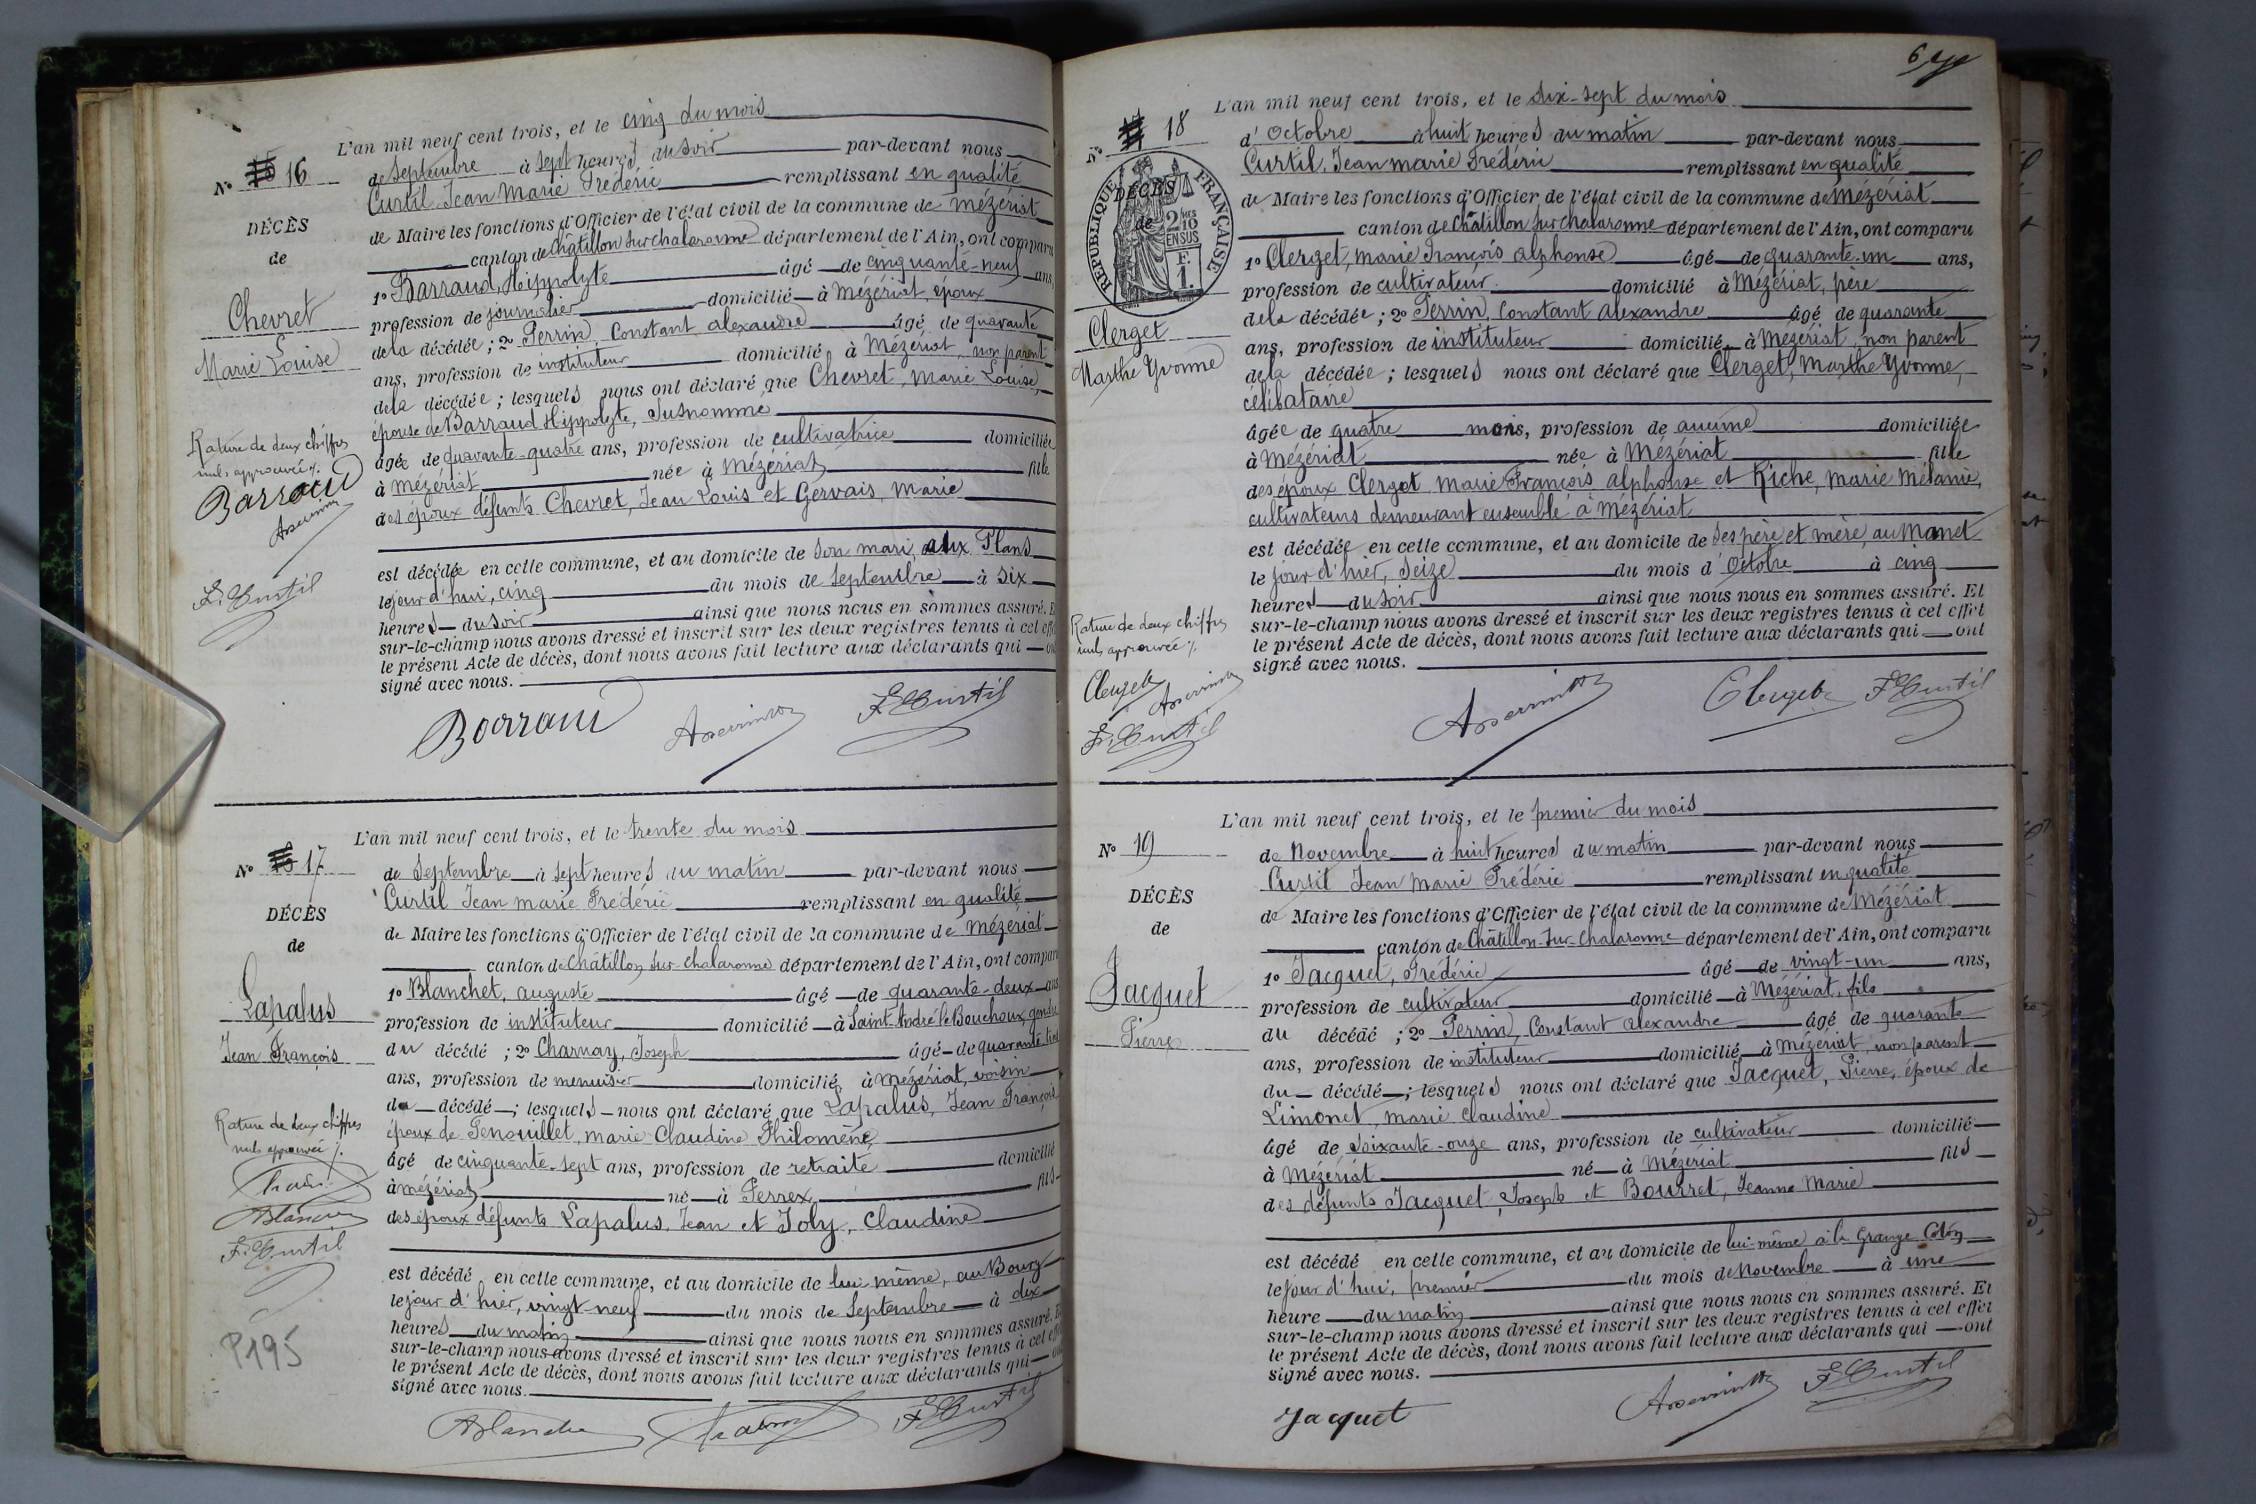 L'an mil neuf cent trois, et le cinq du mois
de Septembre à sept heures du soir par-devant nous
Curtil Jean Marie Frédéric remplissant en qualité
de Maire les fonctions d'Officier de l'état civil de la commune de Mézériat
canton de Châtillon sur chalaronne département de l'Ain, ont comparu
1º Barraud, Hippolyte âgé de cinquante-neuf ans,
profession de journalier domicilié à Mézériat, époux
de la décédée ; 2º Perrin, Constant alexandre âgé de quarante
ans, profession de instituteur domicilié à Mézériat, non parent
de la décédée ; lesquels nous ont déclaré que Chevret, Marie Louise,
épouse de Barraud Hippolyte, susnommé
âgée de quarante-quatre ans, profession de cultivatrice domiciliée
à Mézériat née à Mézériat fille
des époux défunts Chevret, Jean Louis et Gervais, Marie
est décédée en cette commune, et au domicile de son mari, aux Plans
le jour d'hui, cinq du mois de septembre à six
heures du soir ainsi que nous nous en sommes assuré. Et
sur-le-champ nous avons dressé et inscrit sur les deux registres tenus à cet effet
le présent Acte de décès, dont nous avons fait lecture aux déclarants qui ont
signé avec nous.
Barraud F. Curtil
Nº 16
DÉCÈS
de
Chevret
Marie Louise
Rature de deux chiffres
nuls approuvée /.
Barraud
F. Curtil
L'an mil neuf cent trois, et le trente du mois
de Septembre à sept heures du matin par-devant nous
Curtil Jean marie Frédéric remplissant en qualité
de Maire les fonctions d'Officier de l'état civil de la commune de Mézériat
canton de Châtillon sur chalaronne département de l'Ain, ont comparu
1º Blanchet, auguste âgé de quarante-deux ans
profession de instituteur domicilié à Saint-André-le-Bouchoux, gendre
du décédé ; 2º Charnay, Joseph âgé de quarante
ans, profession de menuisier domicilié à Mézériat, voisin
du décédé ; lesquels nous ont déclaré que Lapalus, Jean François
époux de Genouillet, marie-Claudine Philomène
âgé de cinquante-sept ans, profession de retraité domicilié
à Mézériat né à Perrex fils
des époux défunts Lapalus, Jean et Joly, Claudine
est décédé en cette commune, et au domicile de lui même, au Bourg
le jour d'hier, vingt neuf du mois de Septembre à dix
heures du matin ainsi que nous nous en sommes assuré. Et
sur-le-champ nous avons dressé et inscrit sur les deux registres tenus à cet effet
le présent Acte de décès, dont nous avons fait lecture aux déclarants qui ont
signé avec nous.
F. Curtil
Nº 17
DÉCÈS
de
Lapalus
Jean François
Rature de deux chiffres
nuls approuvée /.
F. Curtil
P195
6
L'an mil neuf cent trois, et le dix-sept du mois
d'Octobre à huit heures du matin par-devant nous
Curtil, Jean marie Frédéric remplissant en qualité
de Maire les fonctions d'Officier de l'état civil de la commune de Mézériat
canton de Châtillon sur chalaronne département de l'Ain, ont comparu
1º Clerget, marie François alphonse âgé de quarante-un ans,
profession de cultivateur domicilié à Mézériat, père
de la décédée ; 2º Perrin, Constant alexandre âgé de quarante
ans, profession de instituteur domicilié à Mézériat, non parent
de la décédée ; lesquels nous ont déclaré que Clerget, Marthe Yvonne,
célibataire
âgée de quatre mois, profession de aucune domiciliée
à Mézériat née à Mézériat fille
des époux Clerget marie François alphonse et Riche, Marie Mélanie,
cultivateurs demeurant ensemble à Mézériat
est décédée en cette commune, et au domicile de ses père et mère, au Manet
le jour d'hier, seize du mois d'Octobre à cinq
heures du soir ainsi que nous nous en sommes assuré. Et
sur-le-champ nous avons dressé et inscrit sur les deux registres tenus à cet effet
le présent Acte de décès, dont nous avons fait lecture aux déclarants qui ont
signé avec nous.
Clerget F. Curtil
Nº 18
RÉPUBLIQUE FRANÇAISE
DÉCÈS
de
2/10
EN SUS
F.
1.
Clerget
Marthe Yvonne
Rature de deux chiffres
nuls approuvée /.
Clerget
F. Curtil
L'an mil neuf cent trois, et le premier du mois
de Novembre à huit heures du matin par-devant nous
Curtil Jean Marie Frédéric remplissant en qualité
de Maire les fonctions d'Officier de l'état civil de la commune de Mézériat
canton de Châtillon-sur-chalaronne département de l'Ain, ont comparu
1º Jacquet, Frédéric âgé de vingt-un ans,
profession de cultivateur domicilié à Mézériat, fils
du décédé ; 2º Perrin, Constant alexandre âgé de quarante
ans, profession de instituteur domicilié à Mézériat, non parent
du décédé ; lesquels nous ont déclaré que Jacquet, Pierre, époux de
Limonet, marie claudine
âgé de soixante-onze ans, profession de cultivateur domicilié
à Mézériat né à Mézériat fils
des défunts Jacquet, Joseph et Bourret, Jeanne Marie
est décédé en cette commune, et au domicile de lui-même à la Grange Colon
le jour d'hui, premier du mois de Novembre à une
heure du matin ainsi que nous nous en sommes assuré. Et
sur-le-champ nous avons dressé et inscrit sur les deux registres tenus à cet effet
le présent Acte de décès, dont nous avons fait lecture aux déclarants qui ont
signé avec nous.
Jacquet F. Curtil
Nº 19
DÉCÈS
de
Jacquet
Pierre